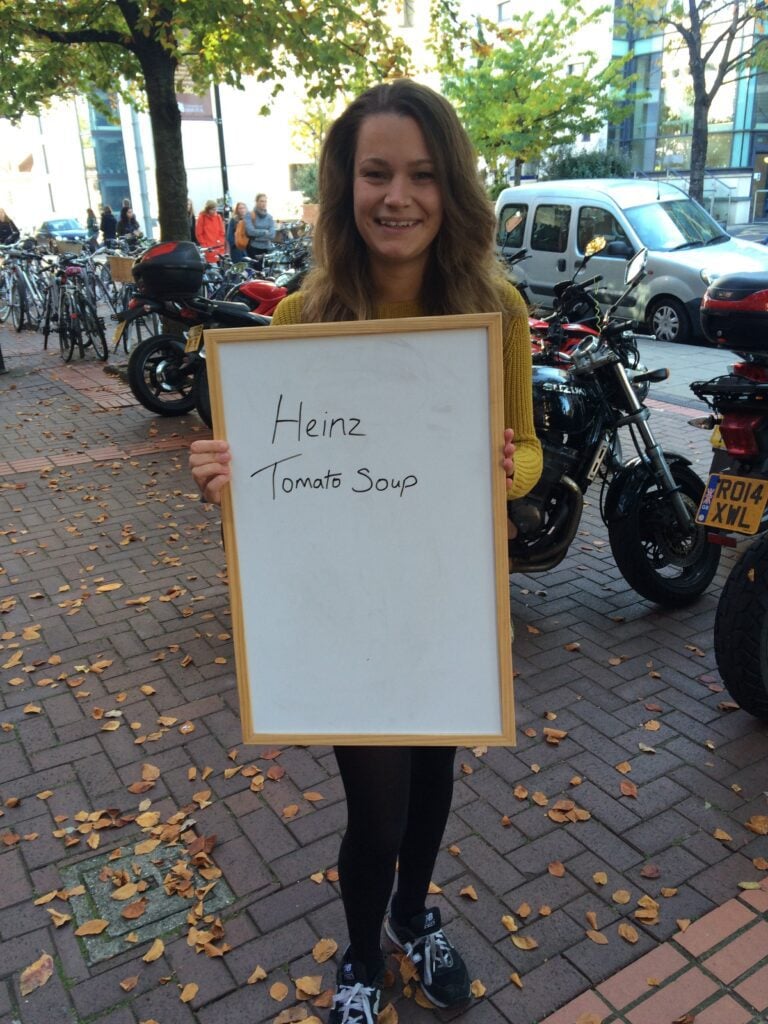 Heinz
Tomato Soup
SUZUKI
RO14
XWL